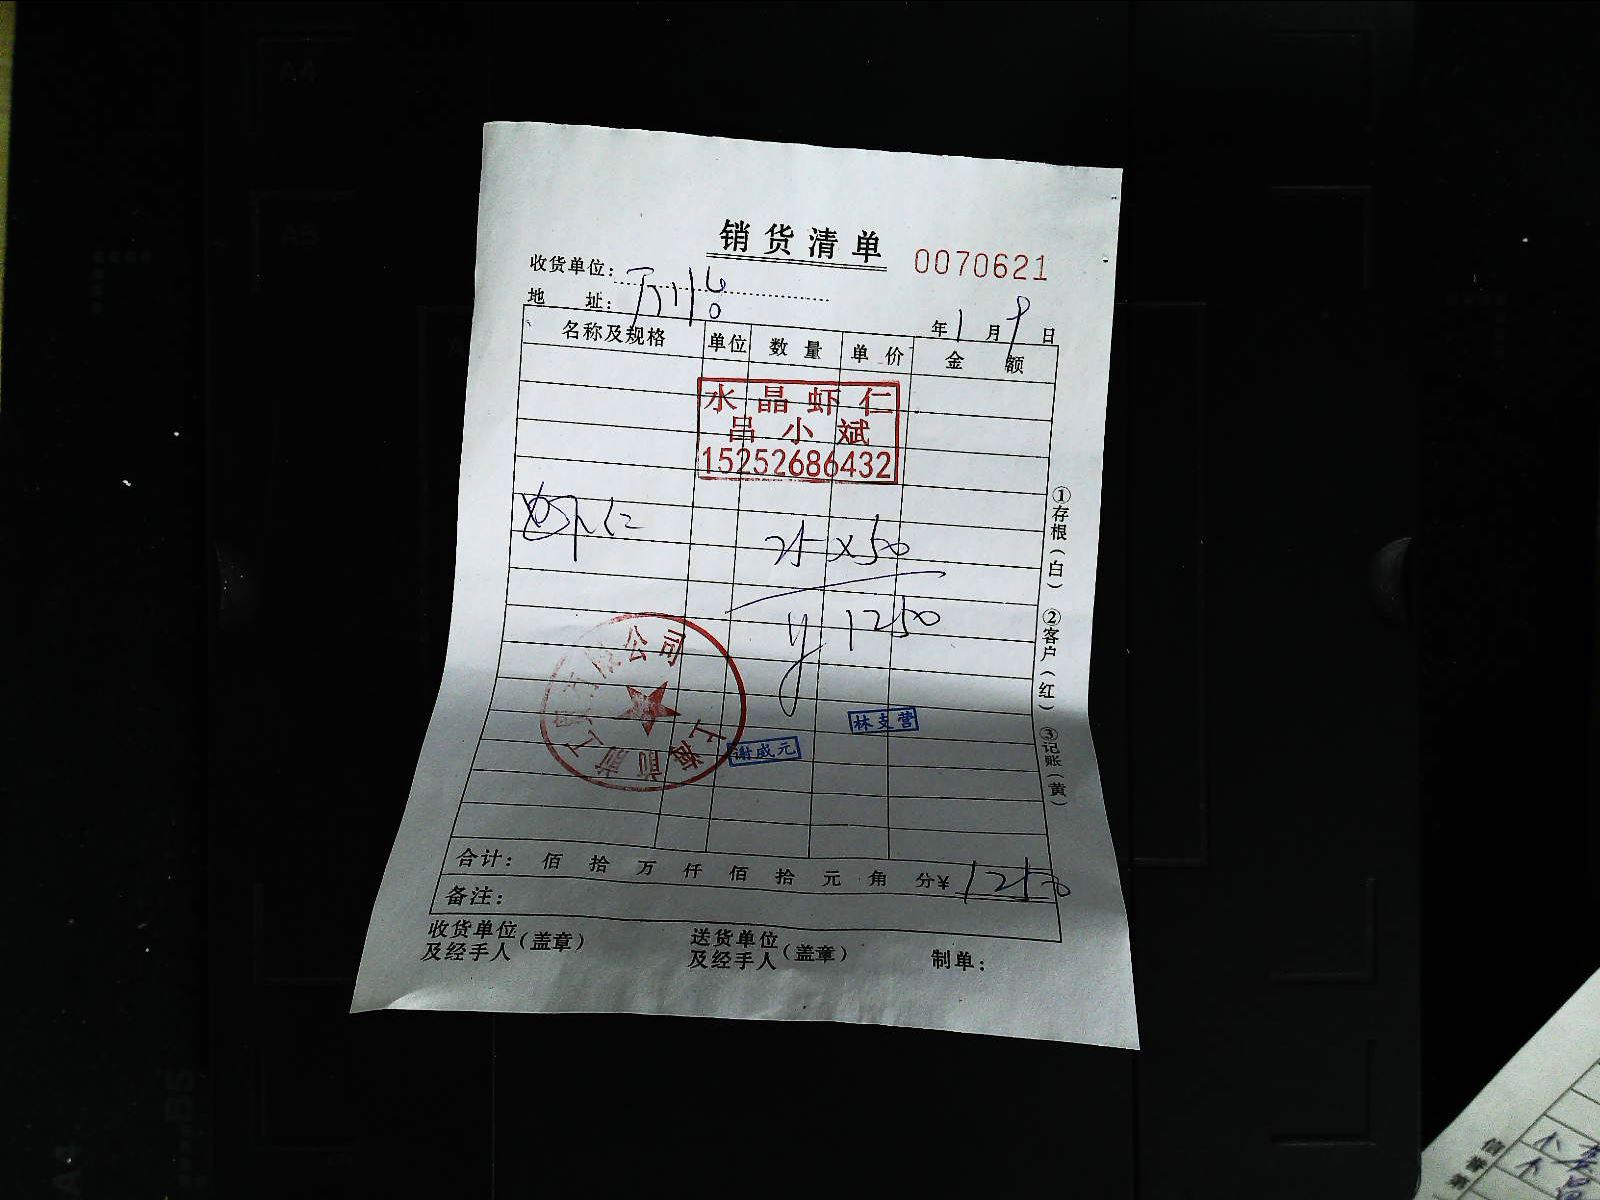 销货清单 0070621
收货单位：
地 址：
年1月9日
名称及规格 单位 数量 单价 金额
水晶虾仁
吕小斌
15252686432
虾仁 25×50
¥1250
公司
上海
林支营
谢咸元
合计： 佰 拾 万 仟 佰 拾 元 角 分¥ 1250
备注：
收货单位及经手人（盖章） 送货单位及经手人（盖章） 制单：
①存根（白） ②客户（红） ③记账（黄）
A4
A5
B5
A4